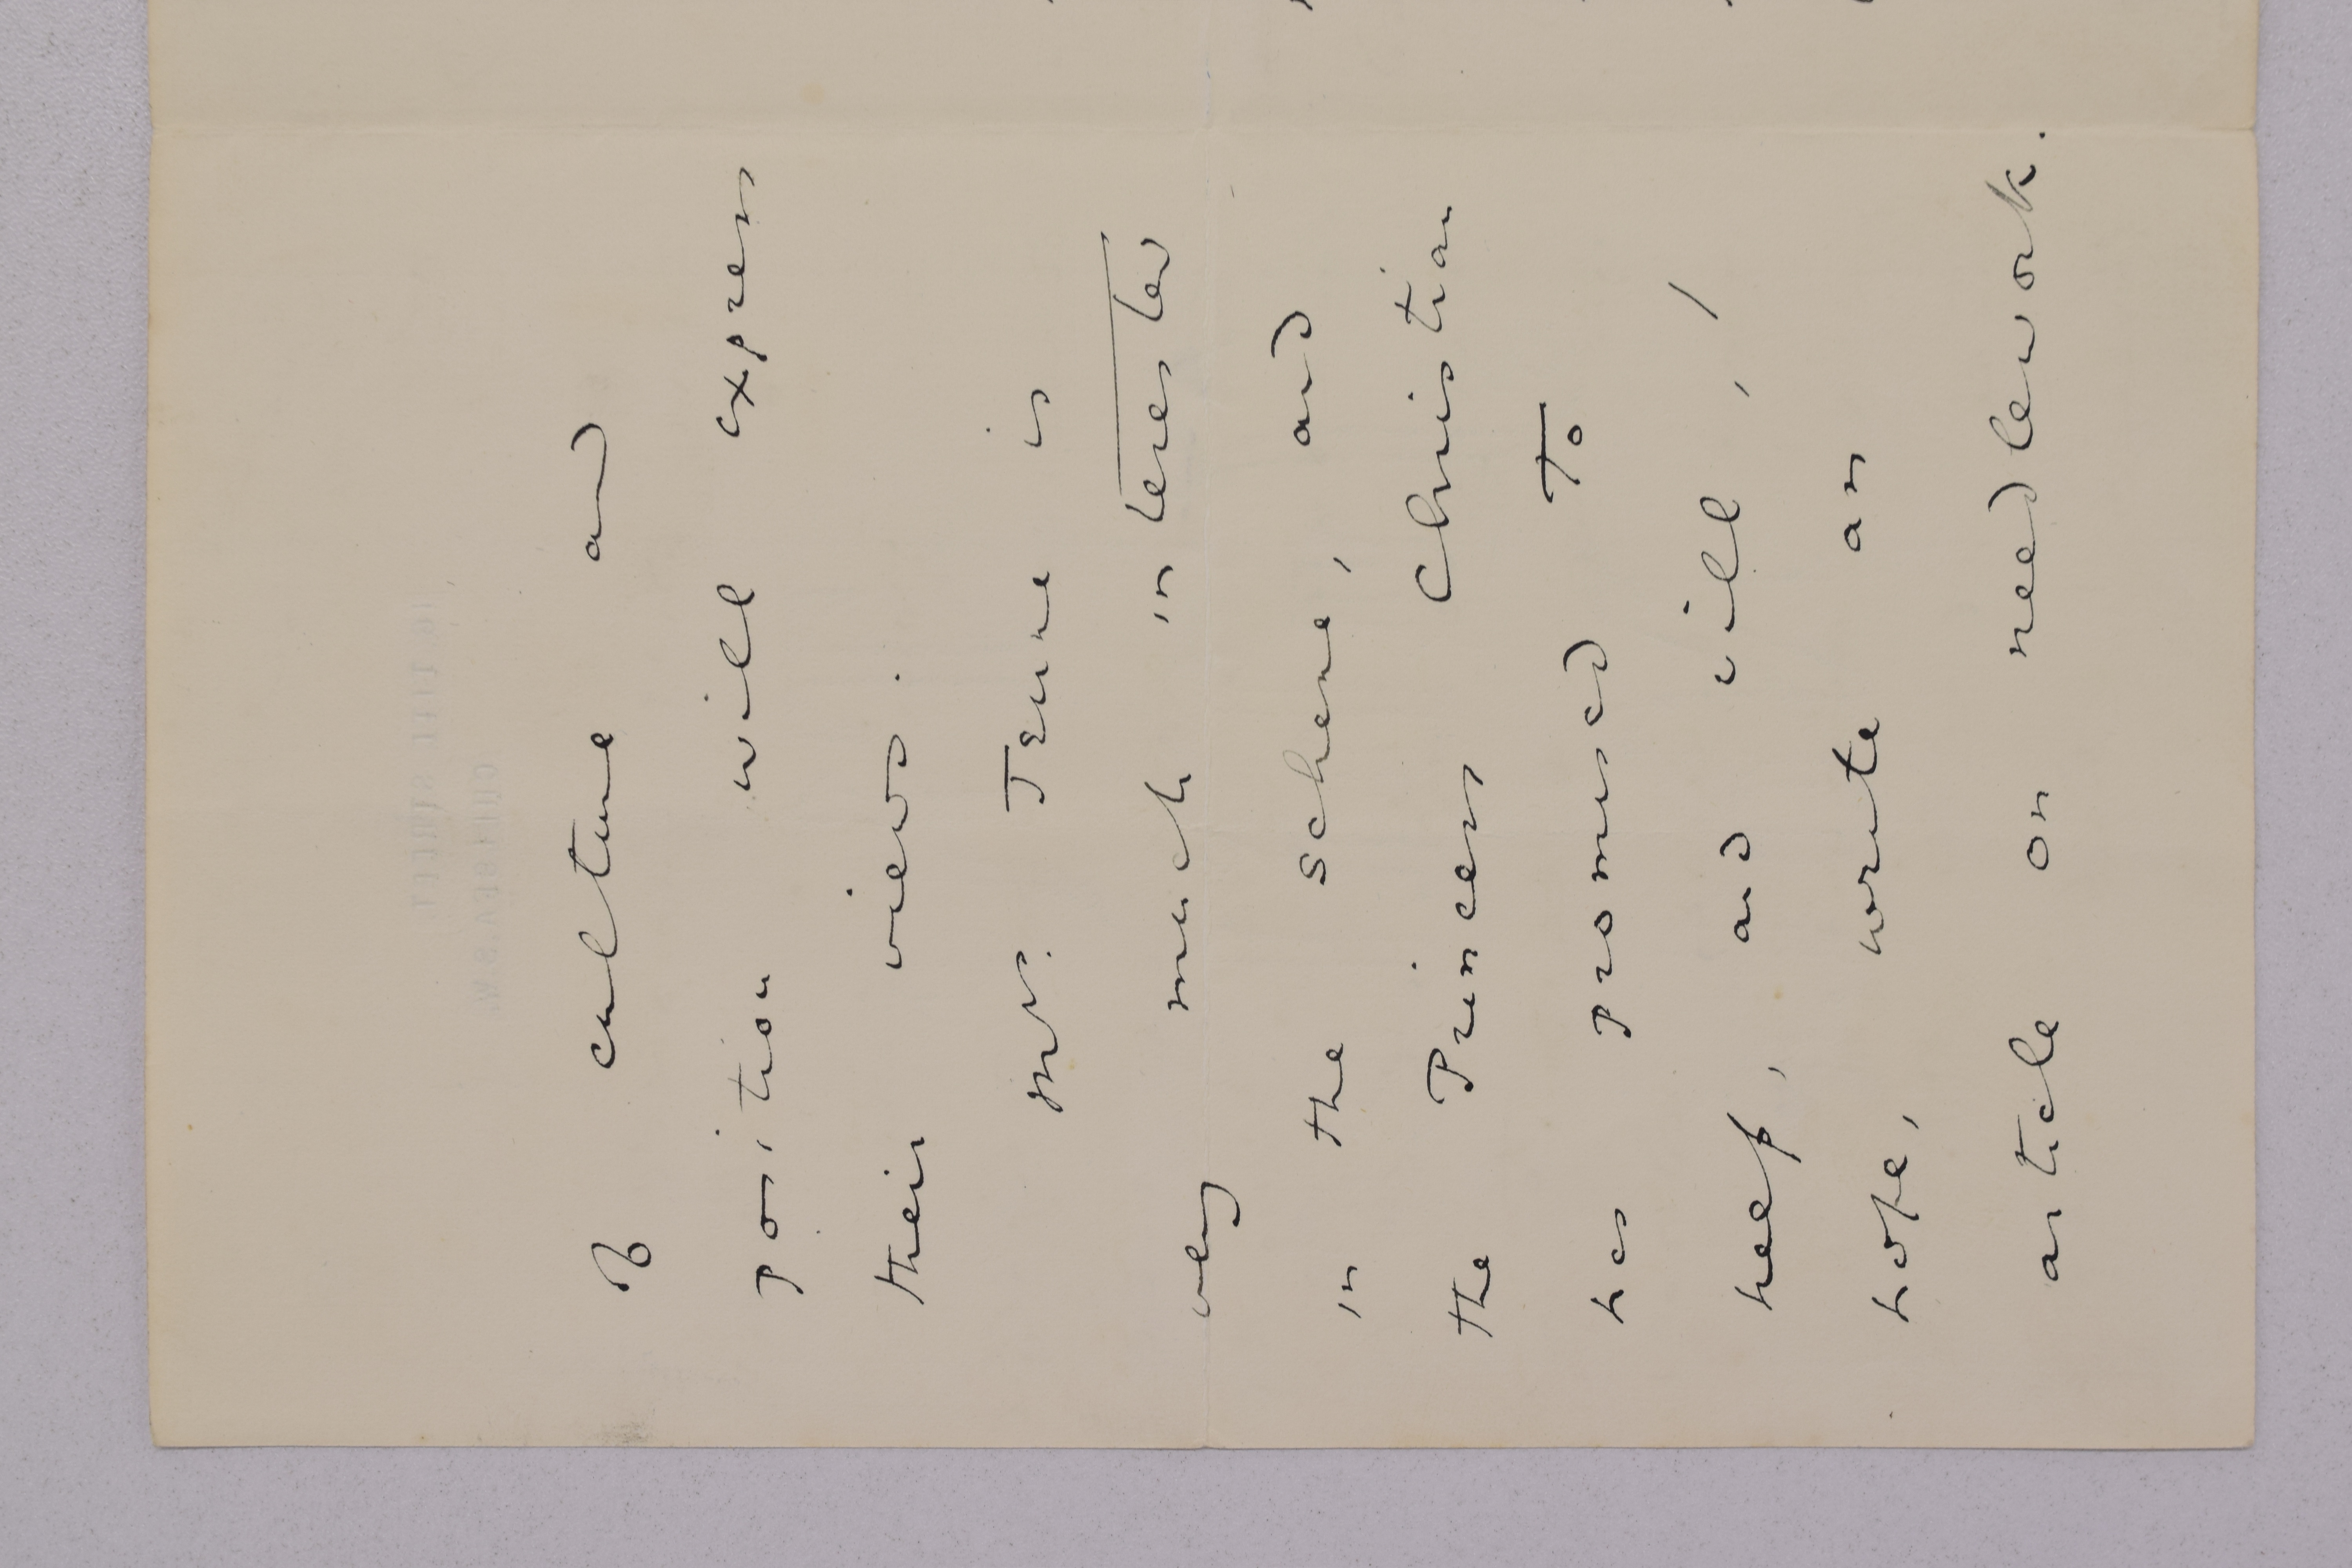 of culture and
position will express
their views.
Mrs. Jeune is
very much interested
in the scheme, and
the Princess Christian
has promised to
help, and will, I
hope, write an
article on needlework.